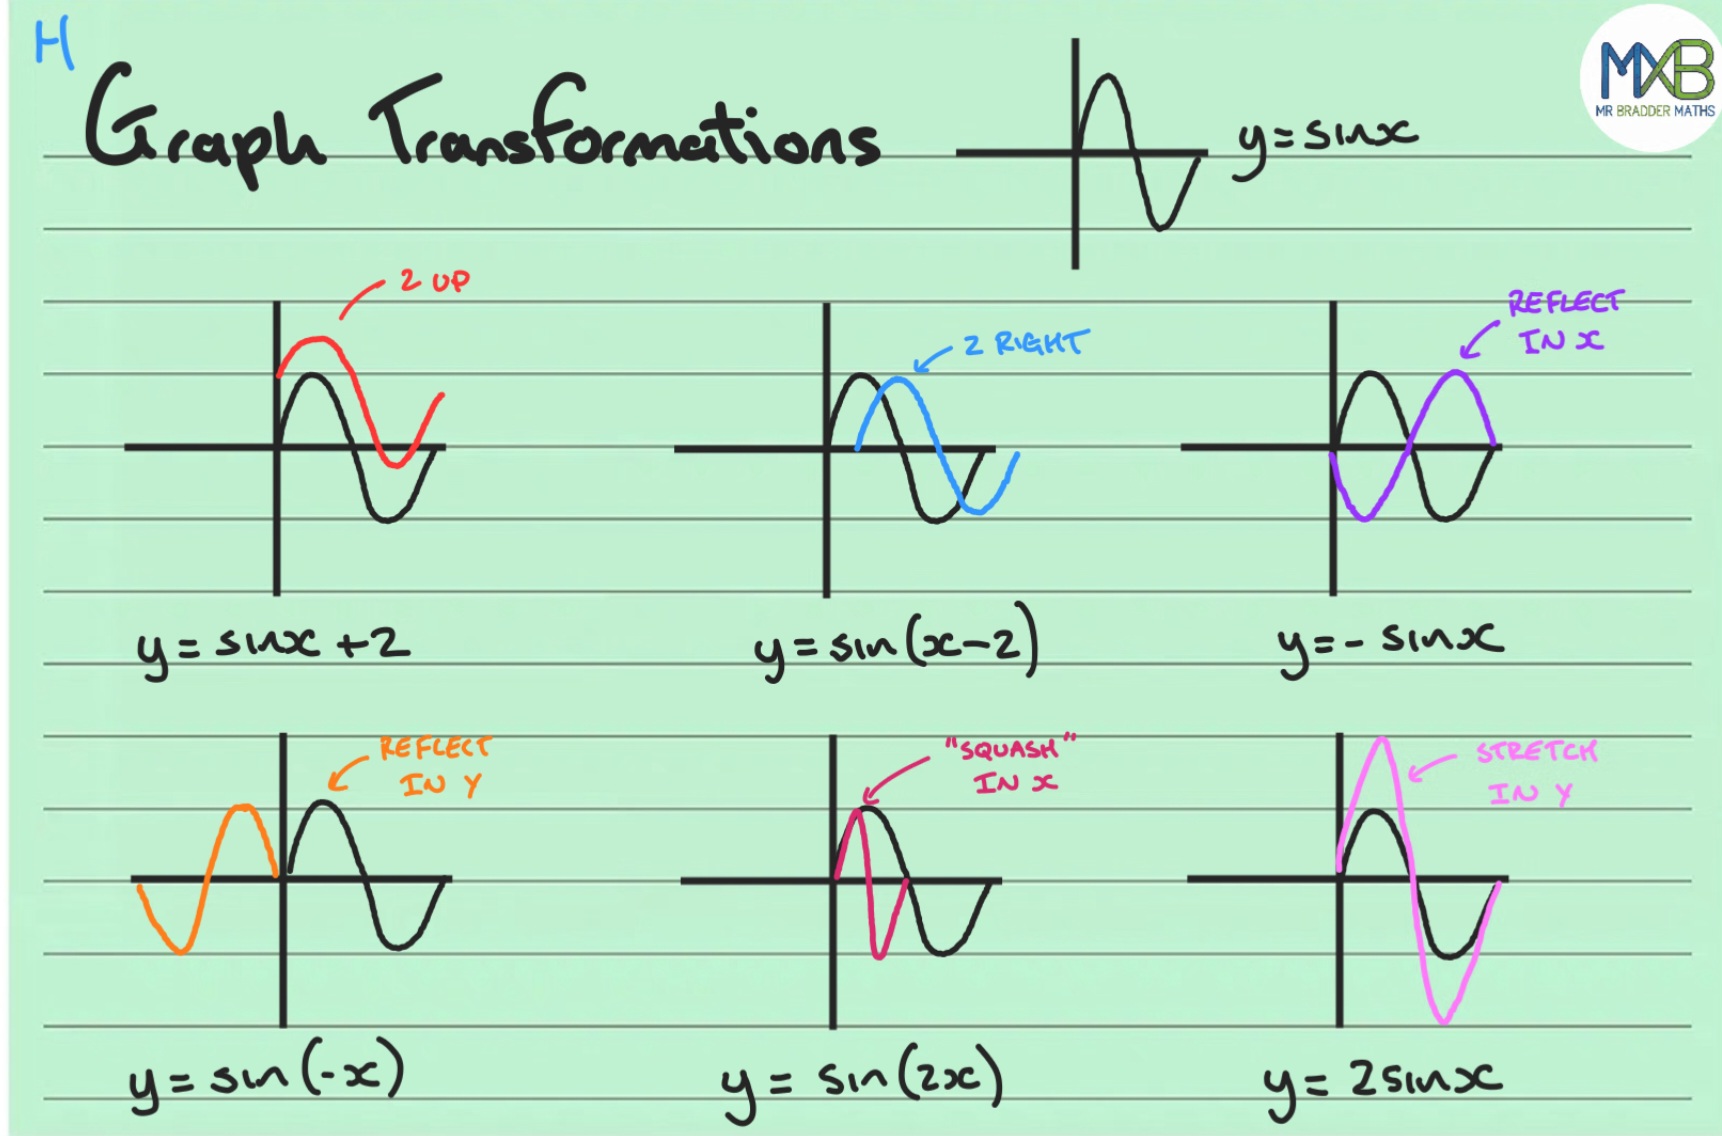 H
Graph Transformations
y=sinx
MXB
MR BRADDER MATHS
2 UP
2 RIGHT
REFLECT
IN X
y=sinx+2
y=sin(x-2)
y=-sinx
REFLECT
IN Y
"SQUASH"
IN X
STRETCH
IN Y
y=sin(-x)
y=sin(2x)
y=2sinx